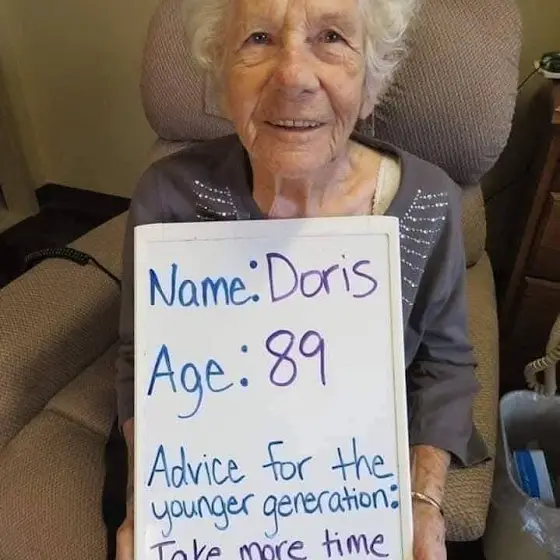 Name: Doris
Age: 89
Advice for the
younger generation:
Take more time